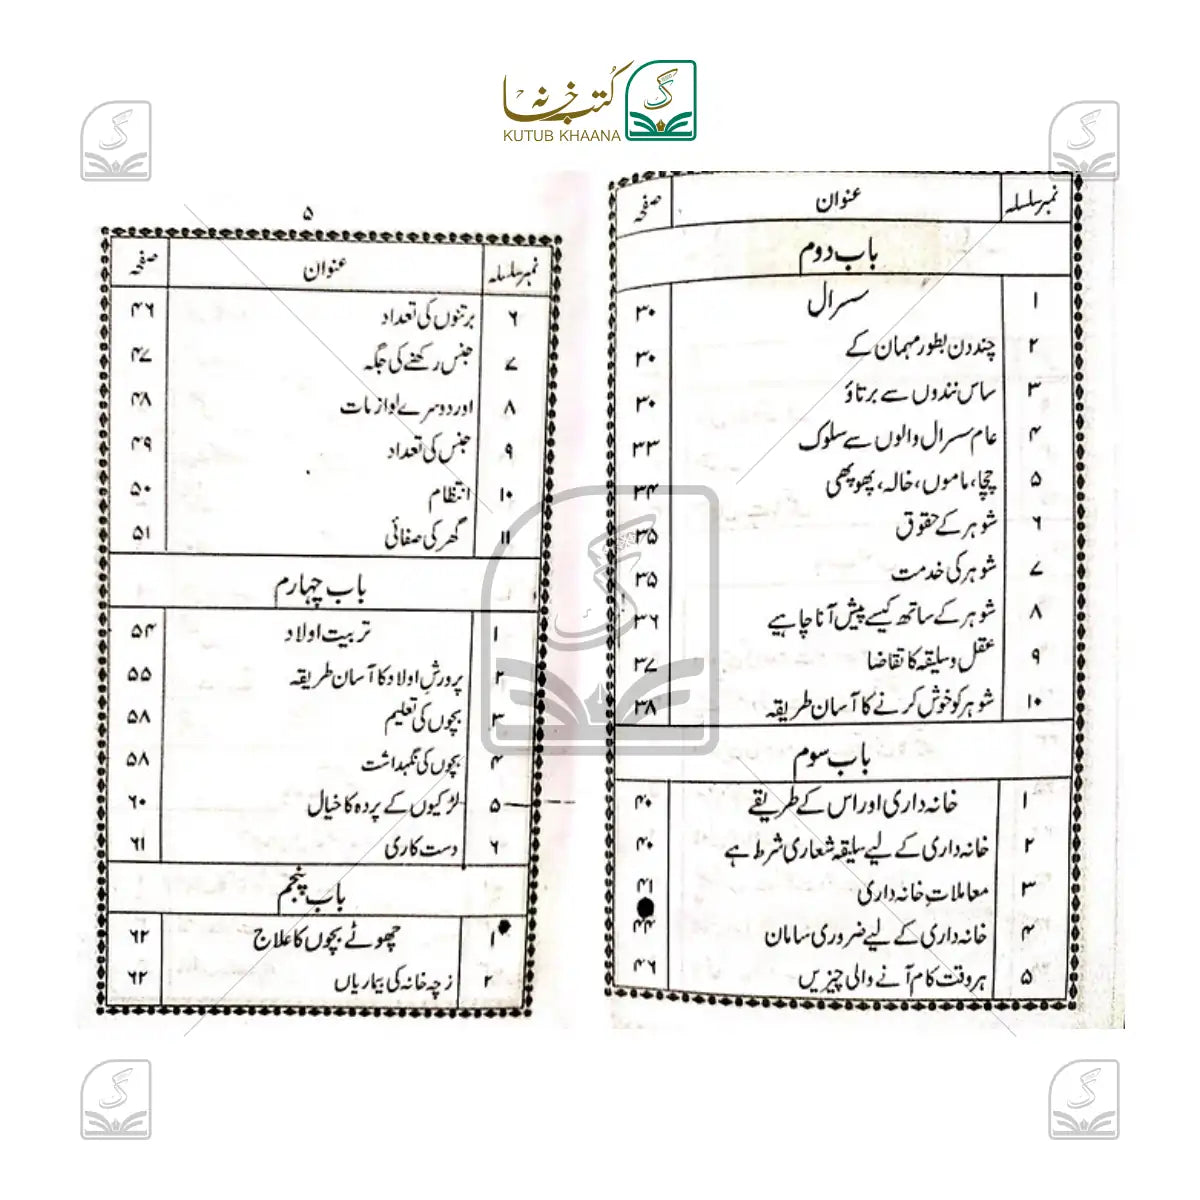 کتب خانہ
KUTUB KHAANA
نمبر سلسلہ عنوان صفحہ
باب دوم
۱ سسرال ۳۰
۲ چند دن بطور مہمان کے ۳۰
۳ ساس نندوں سے برتاؤ ۳۰
۴ عام سسرال والوں سے سلوک ۳۳
۵ چچا، ماموں، خالہ، پھوپھی ۳۴
۶ شوہر کے حقوق ۳۵
۷ شوہر کی خدمت ۳۵
۸ شوہر کے ساتھ کیسے پیش آنا چاہیے ۳۶
۹ عقل و سلیقہ کا تقاضا ۳۷
۱۰ شوہر کو خوش کرنے کا آسان طریقہ ۳۸
باب سوم
۱ خانہ داری اور اس کے طریقے ۴۰
۲ خانہ داری کے لیے سلیقہ شعاری شرط ہے ۴۰
۳ معاملاتِ خانہ داری ۴۱
۴ خانہ داری کے لیے ضروری سامان ۴۴
۵ ہر وقت کام آنے والی چیزیں ۴۶
۵
نمبر سلسلہ عنوان صفحہ
۶ برتنوں کی تعداد ۴۶
۷ جنس رکھنے کی جگہ ۴۷
۸ اور دوسرے لوازمات ۴۸
۹ جنس کی تعداد ۴۹
۱۰ انتظام ۵۰
۱۱ گھر کی صفائی ۵۱
باب چہارم
۱ تربیت اولاد ۵۴
۲ پرورشِ اولاد کا آسان طریقہ ۵۵
۳ بچوں کی تعلیم ۵۸
۴ بچوں کی نگہداشت ۵۸
۵ لڑکیوں کے پردہ کا خیال ۶۰
۶ دست کاری ۶۱
باب پنجم
۱ چھوٹے بچوں کا علاج ۶۲
۲ زچہ خانہ کی بیماریاں ۶۲